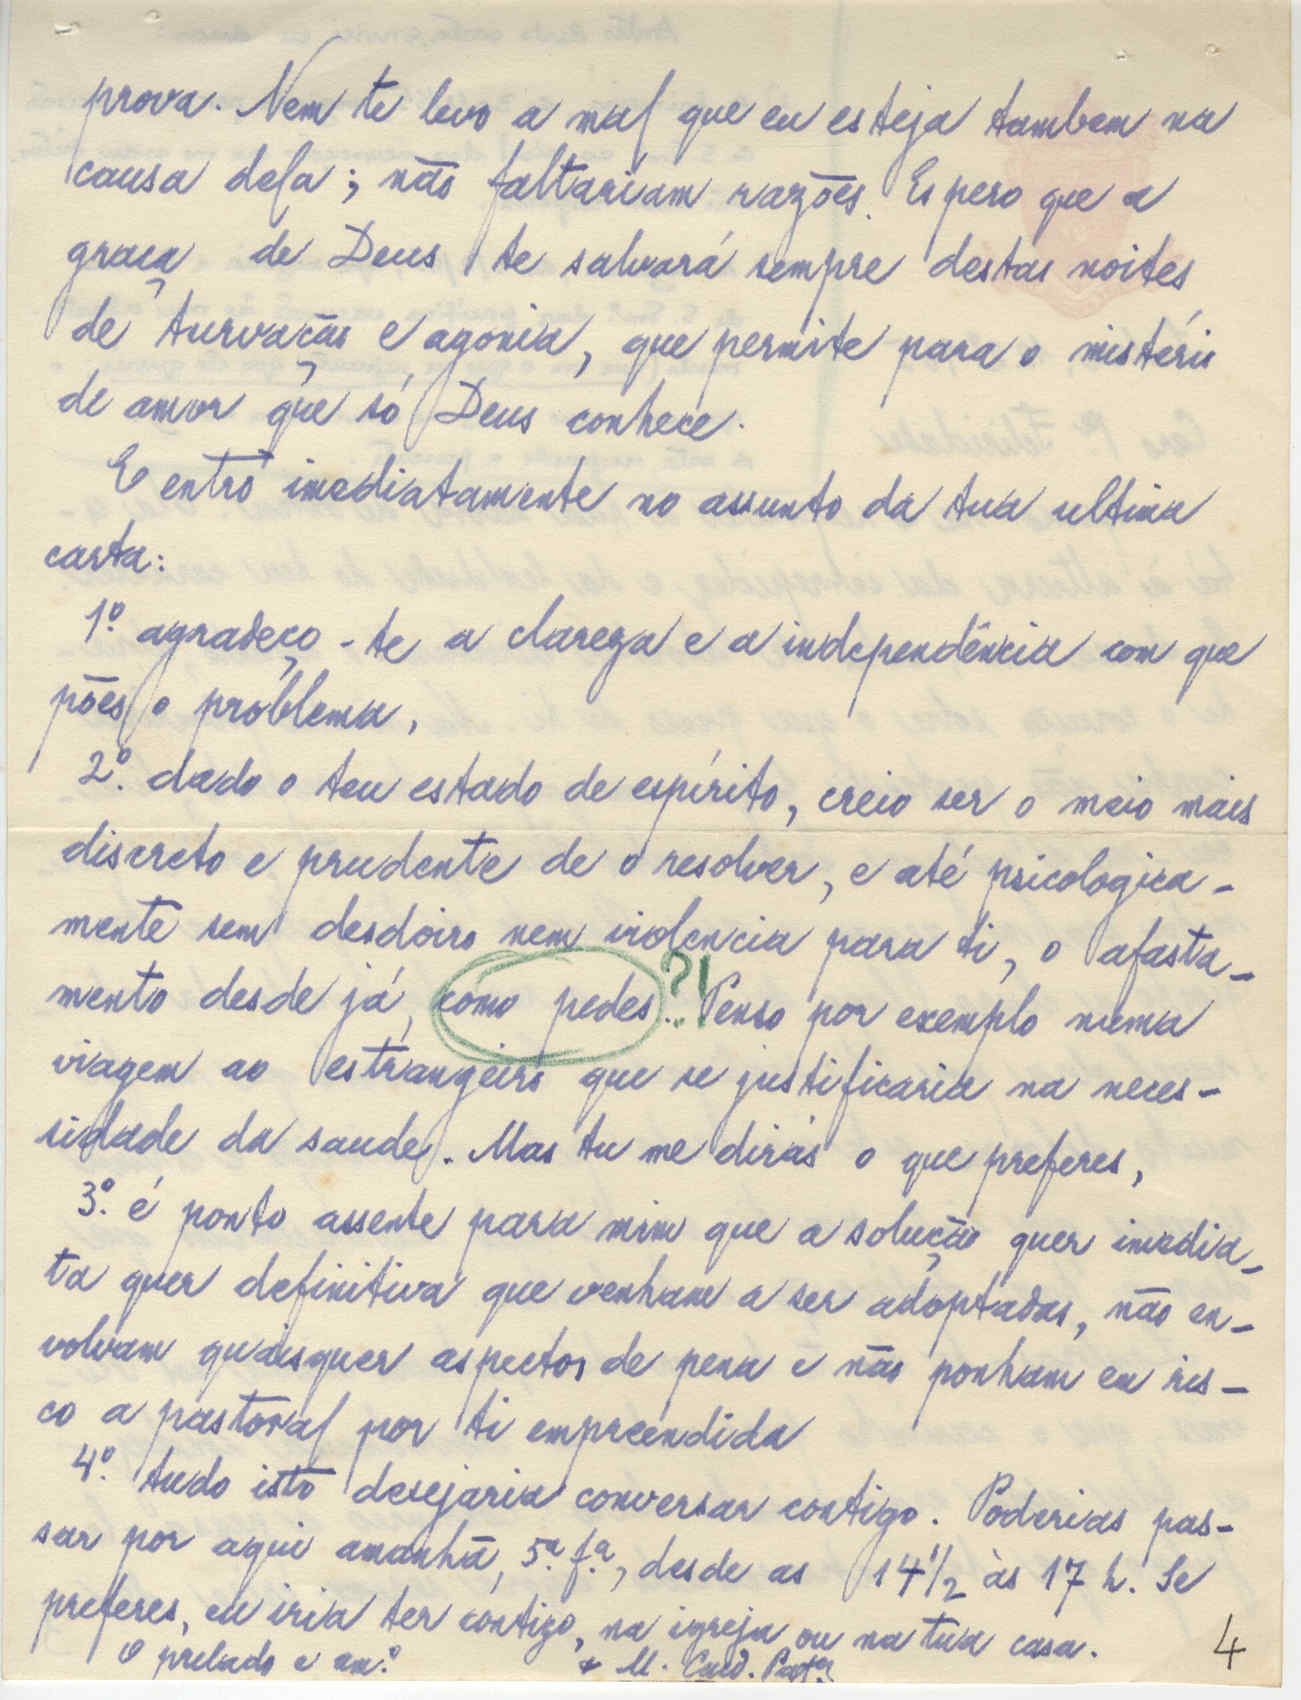 prova. Nem te levo a mal que eu esteja tambem na
causa dela; não faltariam razões. Espero que a
graça de Deus te salvará sempre destas noites
de turvação e agonia, que permite para o mistério
de amor que só Deus conhece.
E entro imediatamente no assunto da tua ultima
carta:
1º. agradeço-te a clareza e a independência com que
pões o problema,
2º. dado o teu estado de espírito, creio ser o meio mais
discreto e prudente de o resolver, e até psicologica-
mente sem desdoiro nem violencia para ti, o afasta-
mento desde já, como pedes. ?! Penso por exemplo numa
viagem ao estrangeiro que se justificaria na neces-
sidade da saude. Mas tu me dirás o que preferes,
3º. é ponto assente para mim que a solução quer imedia-
ta quer definitiva que venham a ser adoptadas, não en-
volvam quaisquer aspectos de pena e não ponham em ris-
co a pastoral por ti empreendida
4º. tudo isto desejaria conversar contigo. Poderias pas-
sar por aqui amanhã, 5.ª f.ª, desde as 14 1/2 às 17 h. Se
preferes, eu iria ter contigo, na igreja ou na tua casa.
O prelado e am.º
+ M. Card. Patr.
4